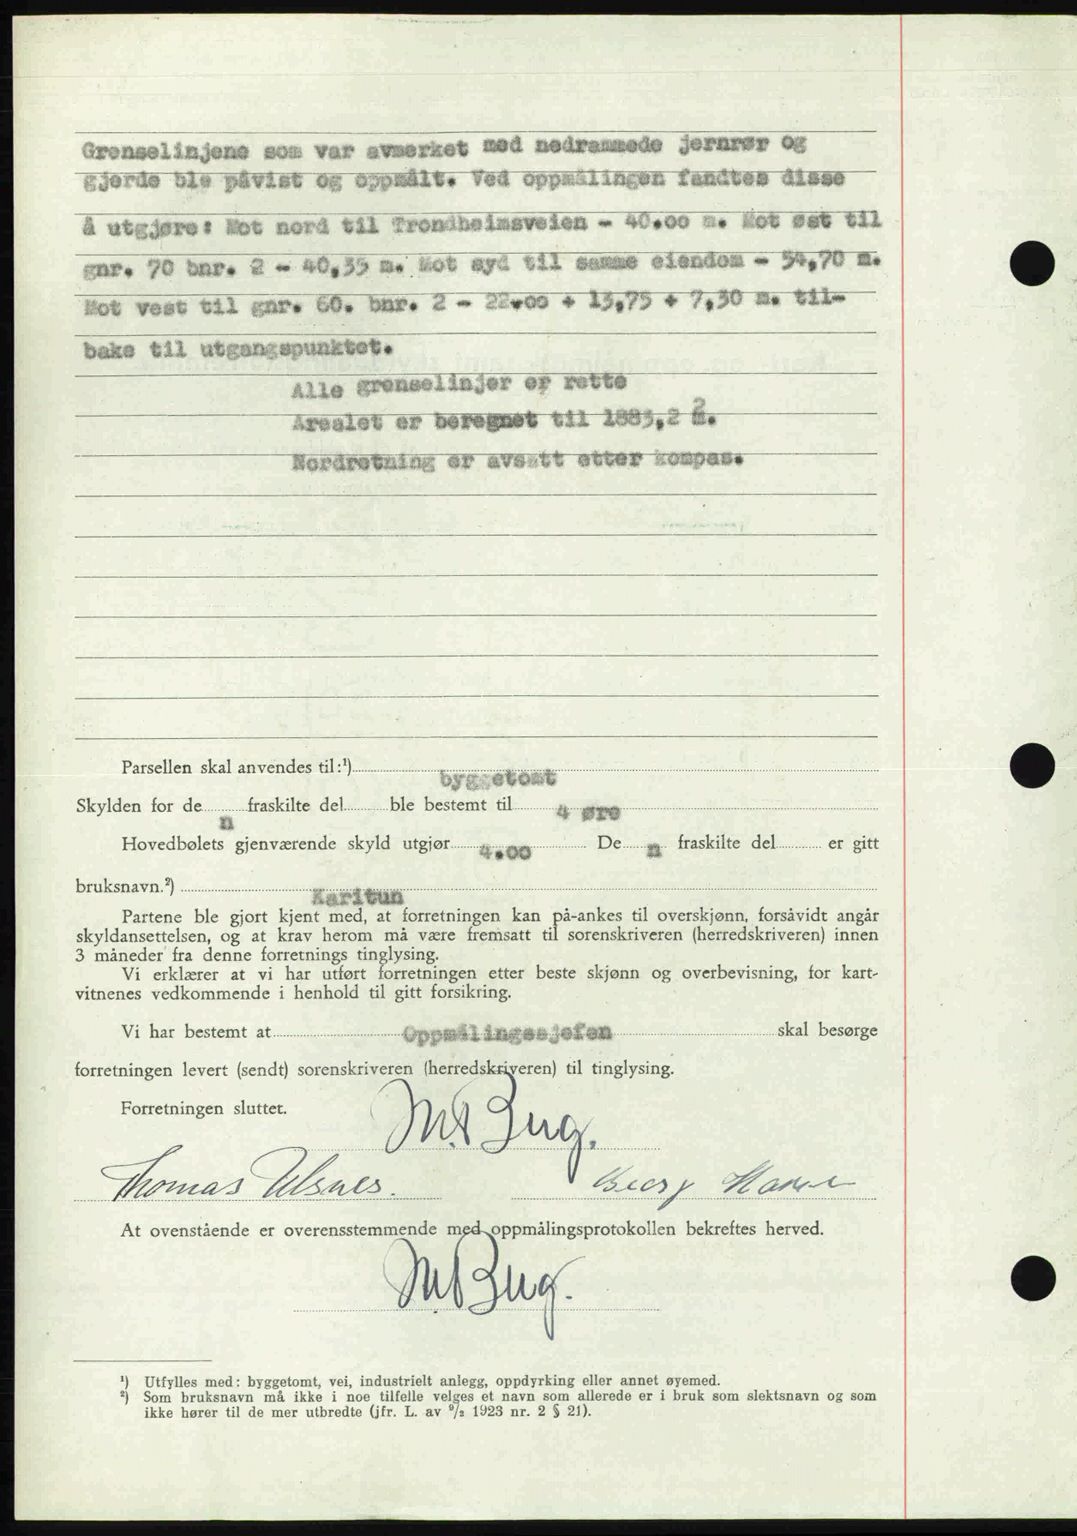 Grenselinjene som var avmerket med nedrammede jernrør og
gjerde ble påvist og oppmålt. Ved oppmålingen fandtes disse
å utgjøre: Mot nord til Trondheimsveien - 40.00 m. Mot øst til
gnr. 70 bnr. 2 - 40,35 m. Mot syd til samme eiendom - 54,70 m.
Mot vest til gnr. 60. bnr. 2 - 22.00 + 13,75 + 7,30 m. til-
bake til utgangspunktet.
Alle grenselinjer er rette
Arealet er beregnet til 1883,2 m2.
Nordretning er avsatt etter kompas.
Parsellen skal anvendes til:¹) byggetomt
Skylden for de n fraskilte del ble bestemt til 4 øre
Hovedbølets gjenværende skyld utgjør 4.00 De n fraskilte del er gitt
bruksnavn.²) Karitun
Partene ble gjort kjent med, at forretningen kan på-ankes til overskjønn, forsåvidt angår
skyldansettelsen, og at krav herom må være fremsatt til sorenskriveren (herredskriveren) innen
3 måneder fra denne forretnings tinglysing.
Vi erklærer at vi har utført forretningen etter beste skjønn og overbevisning, for kart-
vitnenes vedkommende i henhold til gitt forsikring.
Vi har bestemt at Oppmålingssjefen skal besørge
forretningen levert (sendt) sorenskriveren (herredskriveren) til tinglysing.
Forretningen sluttet.
Thomas Ulsnes. Georg
At ovenstående er overensstemmende med oppmålingsprotokollen bekreftes herved.
¹) Utfylles med: byggetomt, vei, industrielt anlegg, oppdyrking eller annet øyemed.
²) Som bruksnavn må ikke i noe tilfelle velges et navn som allerede er i bruk som slektsnavn og som
ikke hører til de mer utbredte (jfr. L. av ⁹/₂ 1923 nr. 2 § 21).